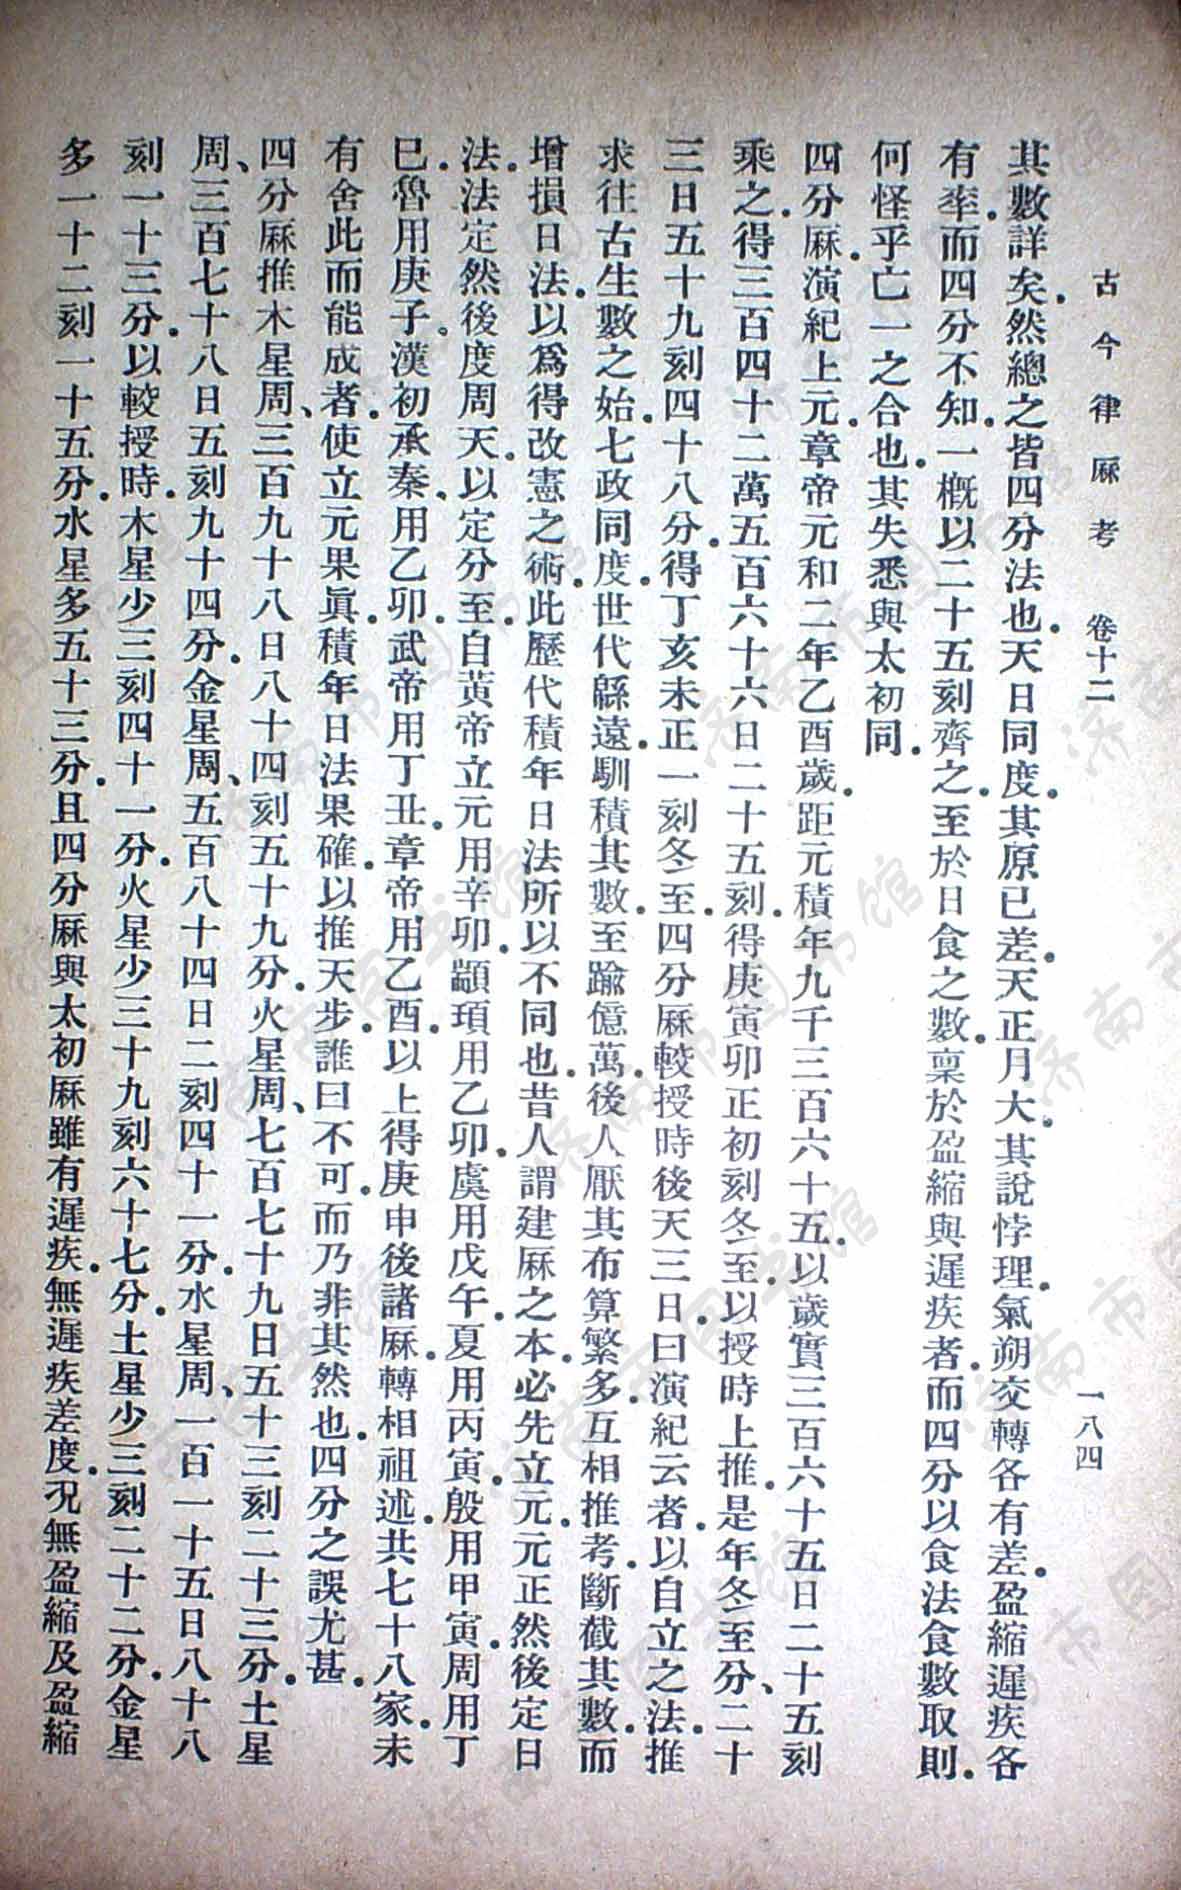 古今律厤考 卷十二 一八四
其數詳矣。然總之皆四分法也。天日同度。其原已差。天正月大。其說悖理。氣朔交轉各有差。盈縮遲疾各
有率。而四分不知。一概以二十五刻齊之。至於日食之數。稟於盈縮與遲疾者。而四分以食法食數取則。
何怪乎亡一之合也。其失悉與太初同。
四分厤。演紀上元。章帝元和二年乙酉歲。距元積年九千三百六十五。以歲實三百六十五日二十五刻
乘之。得三百四十二萬五百六十六日二十五刻。得庚寅卯正初刻冬至。以授時上推。是年冬至分、二十
三日五十九刻四十八分。得丁亥未正一刻冬至。四分厤較授時後天三日。曰演紀云者。以自立之法。推
求往古生數之始。七政同度。世代緜遠。馴積其數。至踰億萬。後人厭其布算繁多。互相推考。斷截其數。而
增損日法。以爲得改憲之術。此歷代積年日法所以不同也。昔人謂建厤之本。必先立元。元正然後定日
法。法定然後度周天。以定分至。自黃帝立元用辛卯。顓頊用乙卯。虞用戊午。夏用丙寅。殷用甲寅。周用丁
巳。魯用庚子。漢初承秦、用乙卯。武帝用丁丑。章帝用乙酉。以上得庚申後諸厤。轉相祖述。共七十八家。未
有舍此而能成者。使立元果眞。積年日法果確。以推天步。誰曰不可。而乃非其然也。四分之誤尤甚。
四分厤推木星周、三百九十八日八十四刻五十九分。火星周、七百七十九日五十三刻二十三分。土星
周、三百七十八日五刻九十四分。金星周、五百八十四日二刻四十一分。水星周、一百一十五日八十八
刻一十三分。以較授時。木星少三刻四十一分。火星少三十九刻六十七分。土星少三刻二十二分。金星
多一十二刻一十五分。水星多五十三分。且四分厤與太初厤雖有遲疾。無遲疾差度。况無盈縮及盈縮